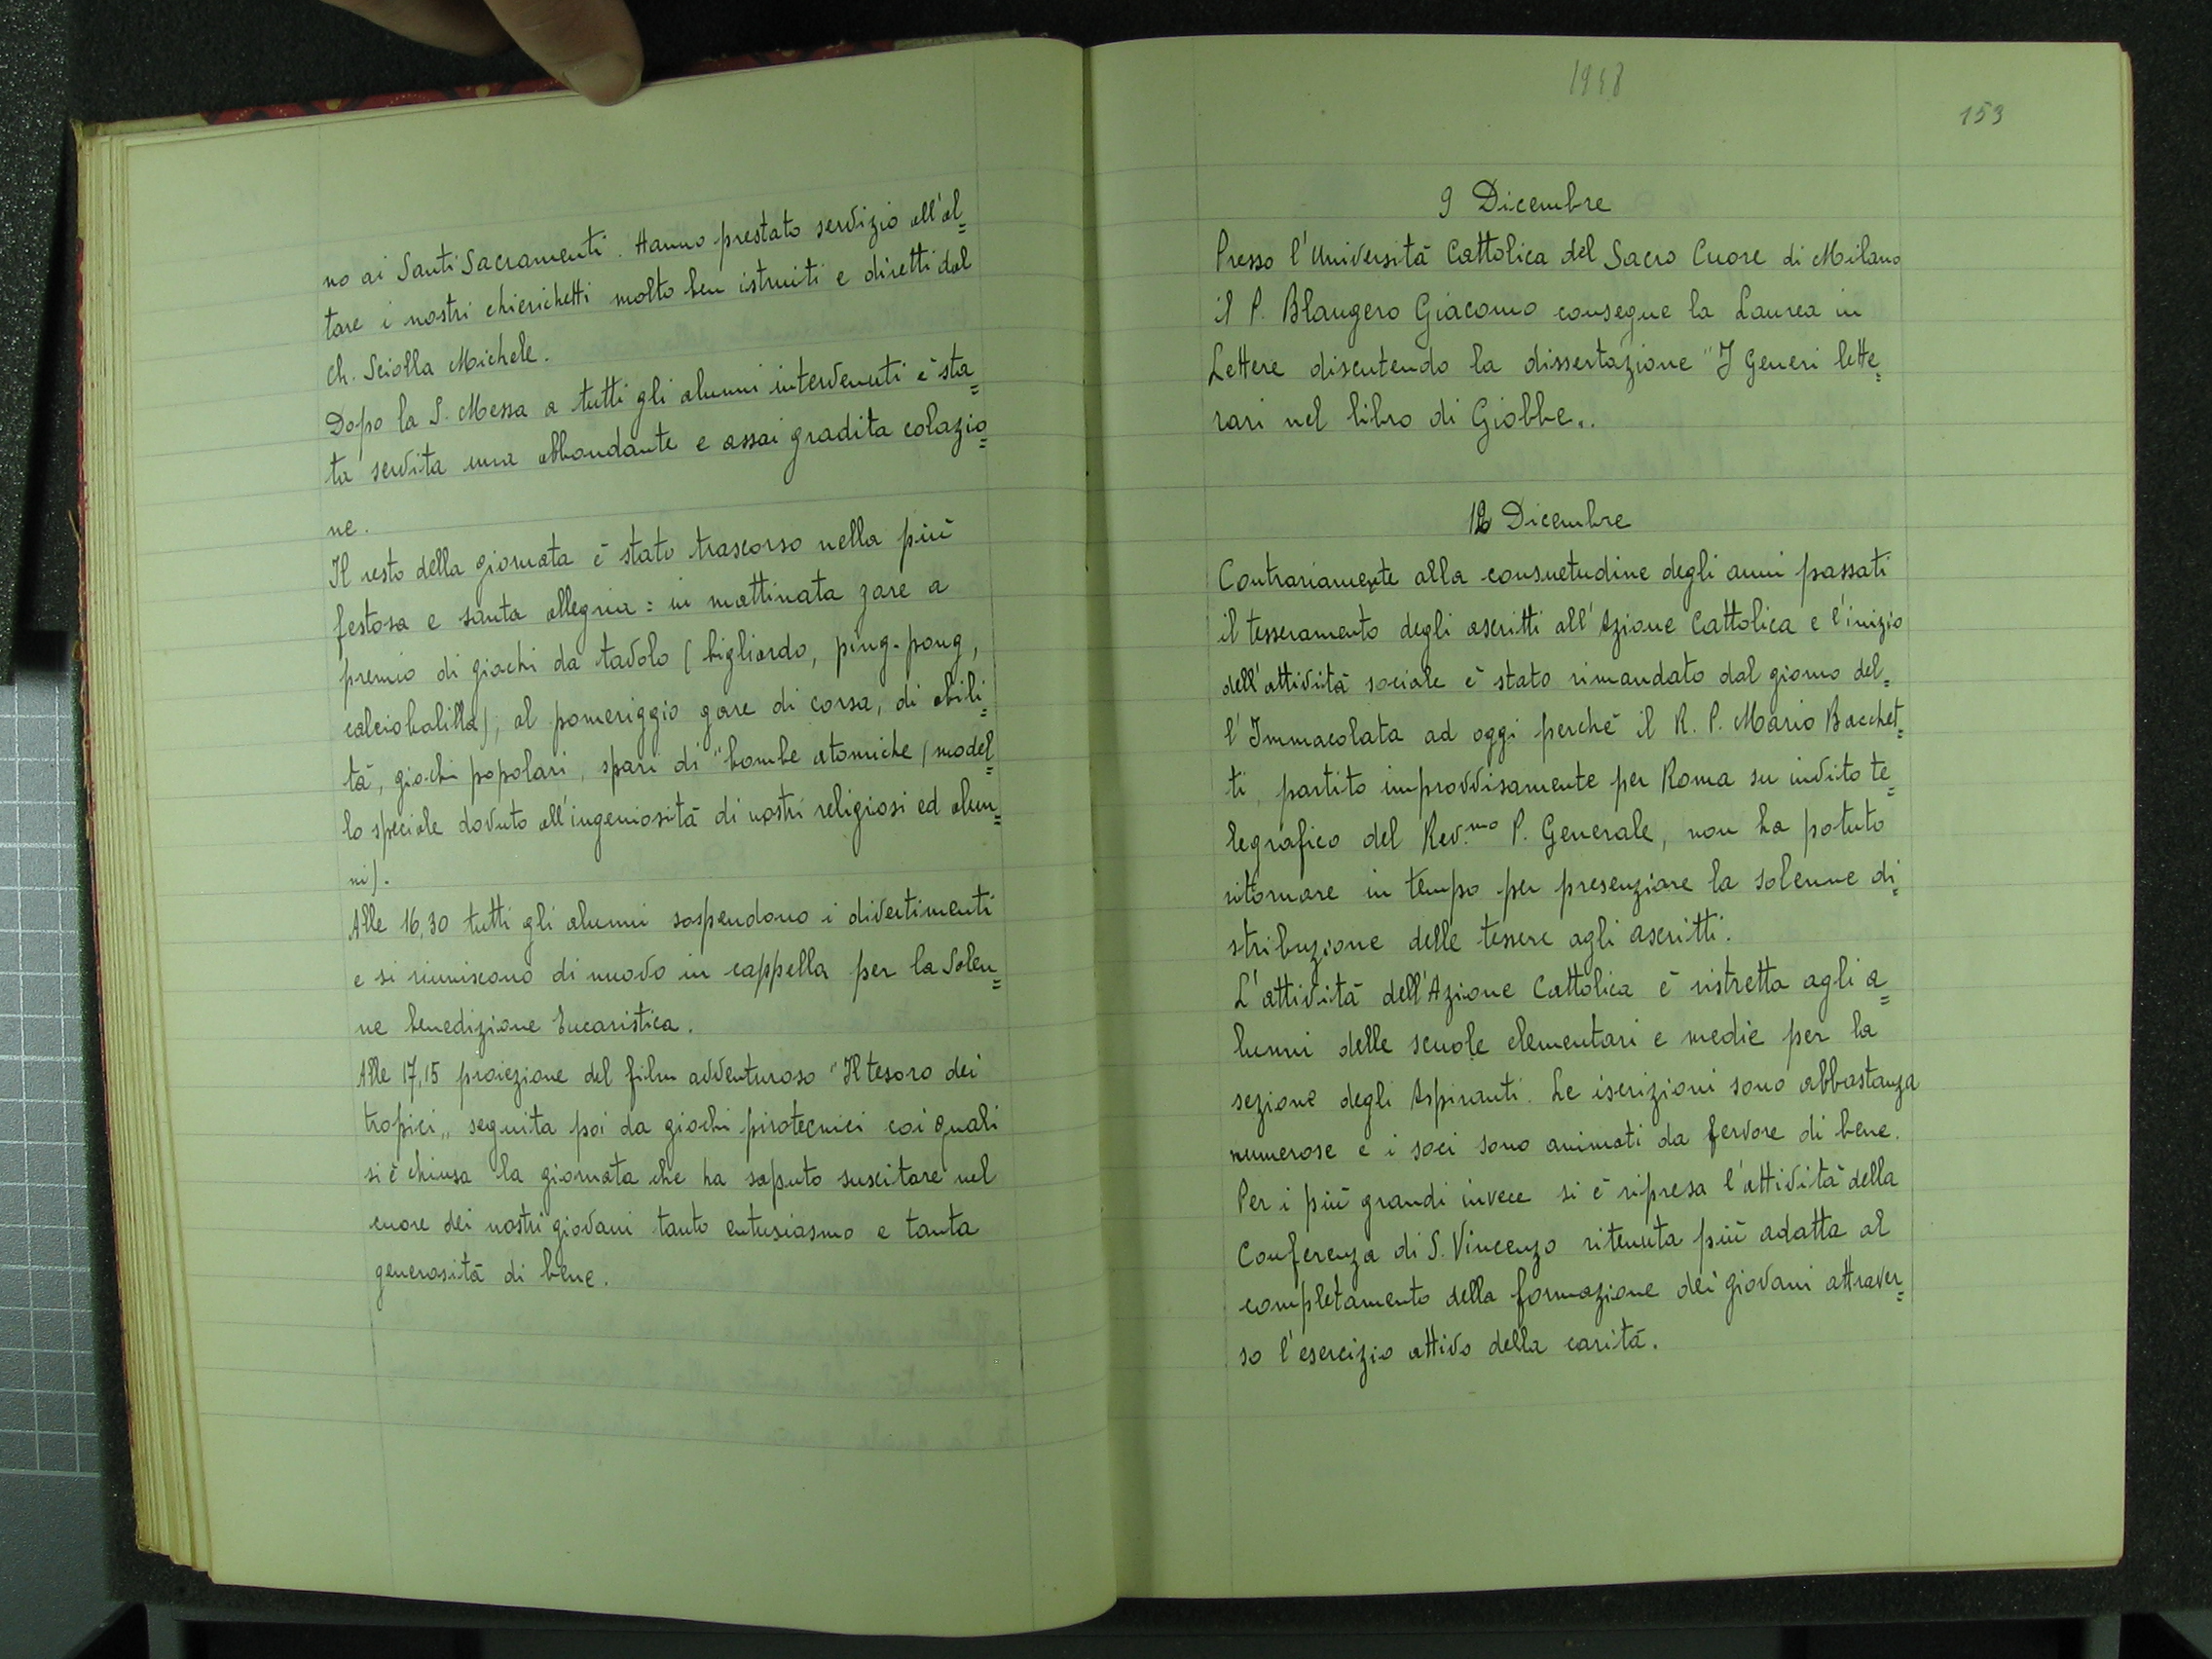 no ai Santi Sacramenti. Hanno prestato servizio all'al=
tare i nostri chierichetti molto ben istruiti e diretti dal
Ch. Sciolla Michele.
Dopo la S. Messa a tutti gli alunni intervenuti è sta=
ta servita una abbondante e assai gradita colazio=
ne.
Il resto della giornata è stato trascorso nella più
festosa e santa allegria: in mattinata gare a
premio di giochi da tavolo (bigliardo, ping-pong,
calciobalilla), al pomeriggio gare di corsa, di abili=
tà, giochi popolari, spari di "bombe atomiche (model=
lo speciale dovuto all'ingeniosità di nostri religiosi ed alun=
ni).
Alle 16,30 tutti gli alunni sospendono i divertimenti
e si riuniscono di nuovo in cappella per la Solen=
ne benedizione Eucaristica.
Alle 17,15 proiezione del film avventuroso "Il tesoro dei
tropici„ seguita poi da giochi pirotecnici coi quali
si è chiusa la giornata che ha saputo suscitare nel
cuore dei nostri giovani tanto entusiasmo e tanta
generosità di bene.
1948
153
9 Dicembre
Presso l'Università Cattolica del Sacro Cuore di Milano
il P. Blangero Giacomo consegue la Laurea in
Lettere discutendo la dissertazione "I Generi lette=
rari nel libro di Giobbe„.
12 Dicembre
Contrariamente alla consuetudine degli anni passati
il tesseramento degli ascritti all'Azione Cattolica e l'inizio
dell'attività sociale è stato rimandato dal giorno del=
l'Immacolata ad oggi perchè il R. P. Mario Bacchet=
ti, partito improvvisamente per Roma su invito te=
legrafico del Rev.mo P. Generale, non ha potuto
ritornare in tempo per presenziare la solenne di=
stribuzione delle tessere agli ascritti.
L'attività dell'Azione Cattolica è ristretta agli a=
lunni delle scuole elementari e medie per la
sezione degli Aspiranti. Le iscrizioni sono abbastanza
numerose e i soci sono animati da fervore di bene.
Per i più grandi invece si è ripresa l'attività della
Conferenza di S. Vincenzo ritenuta più adatta al
completamento della formazione dei giovani attraver=
so l'esercizio attivo della carità.